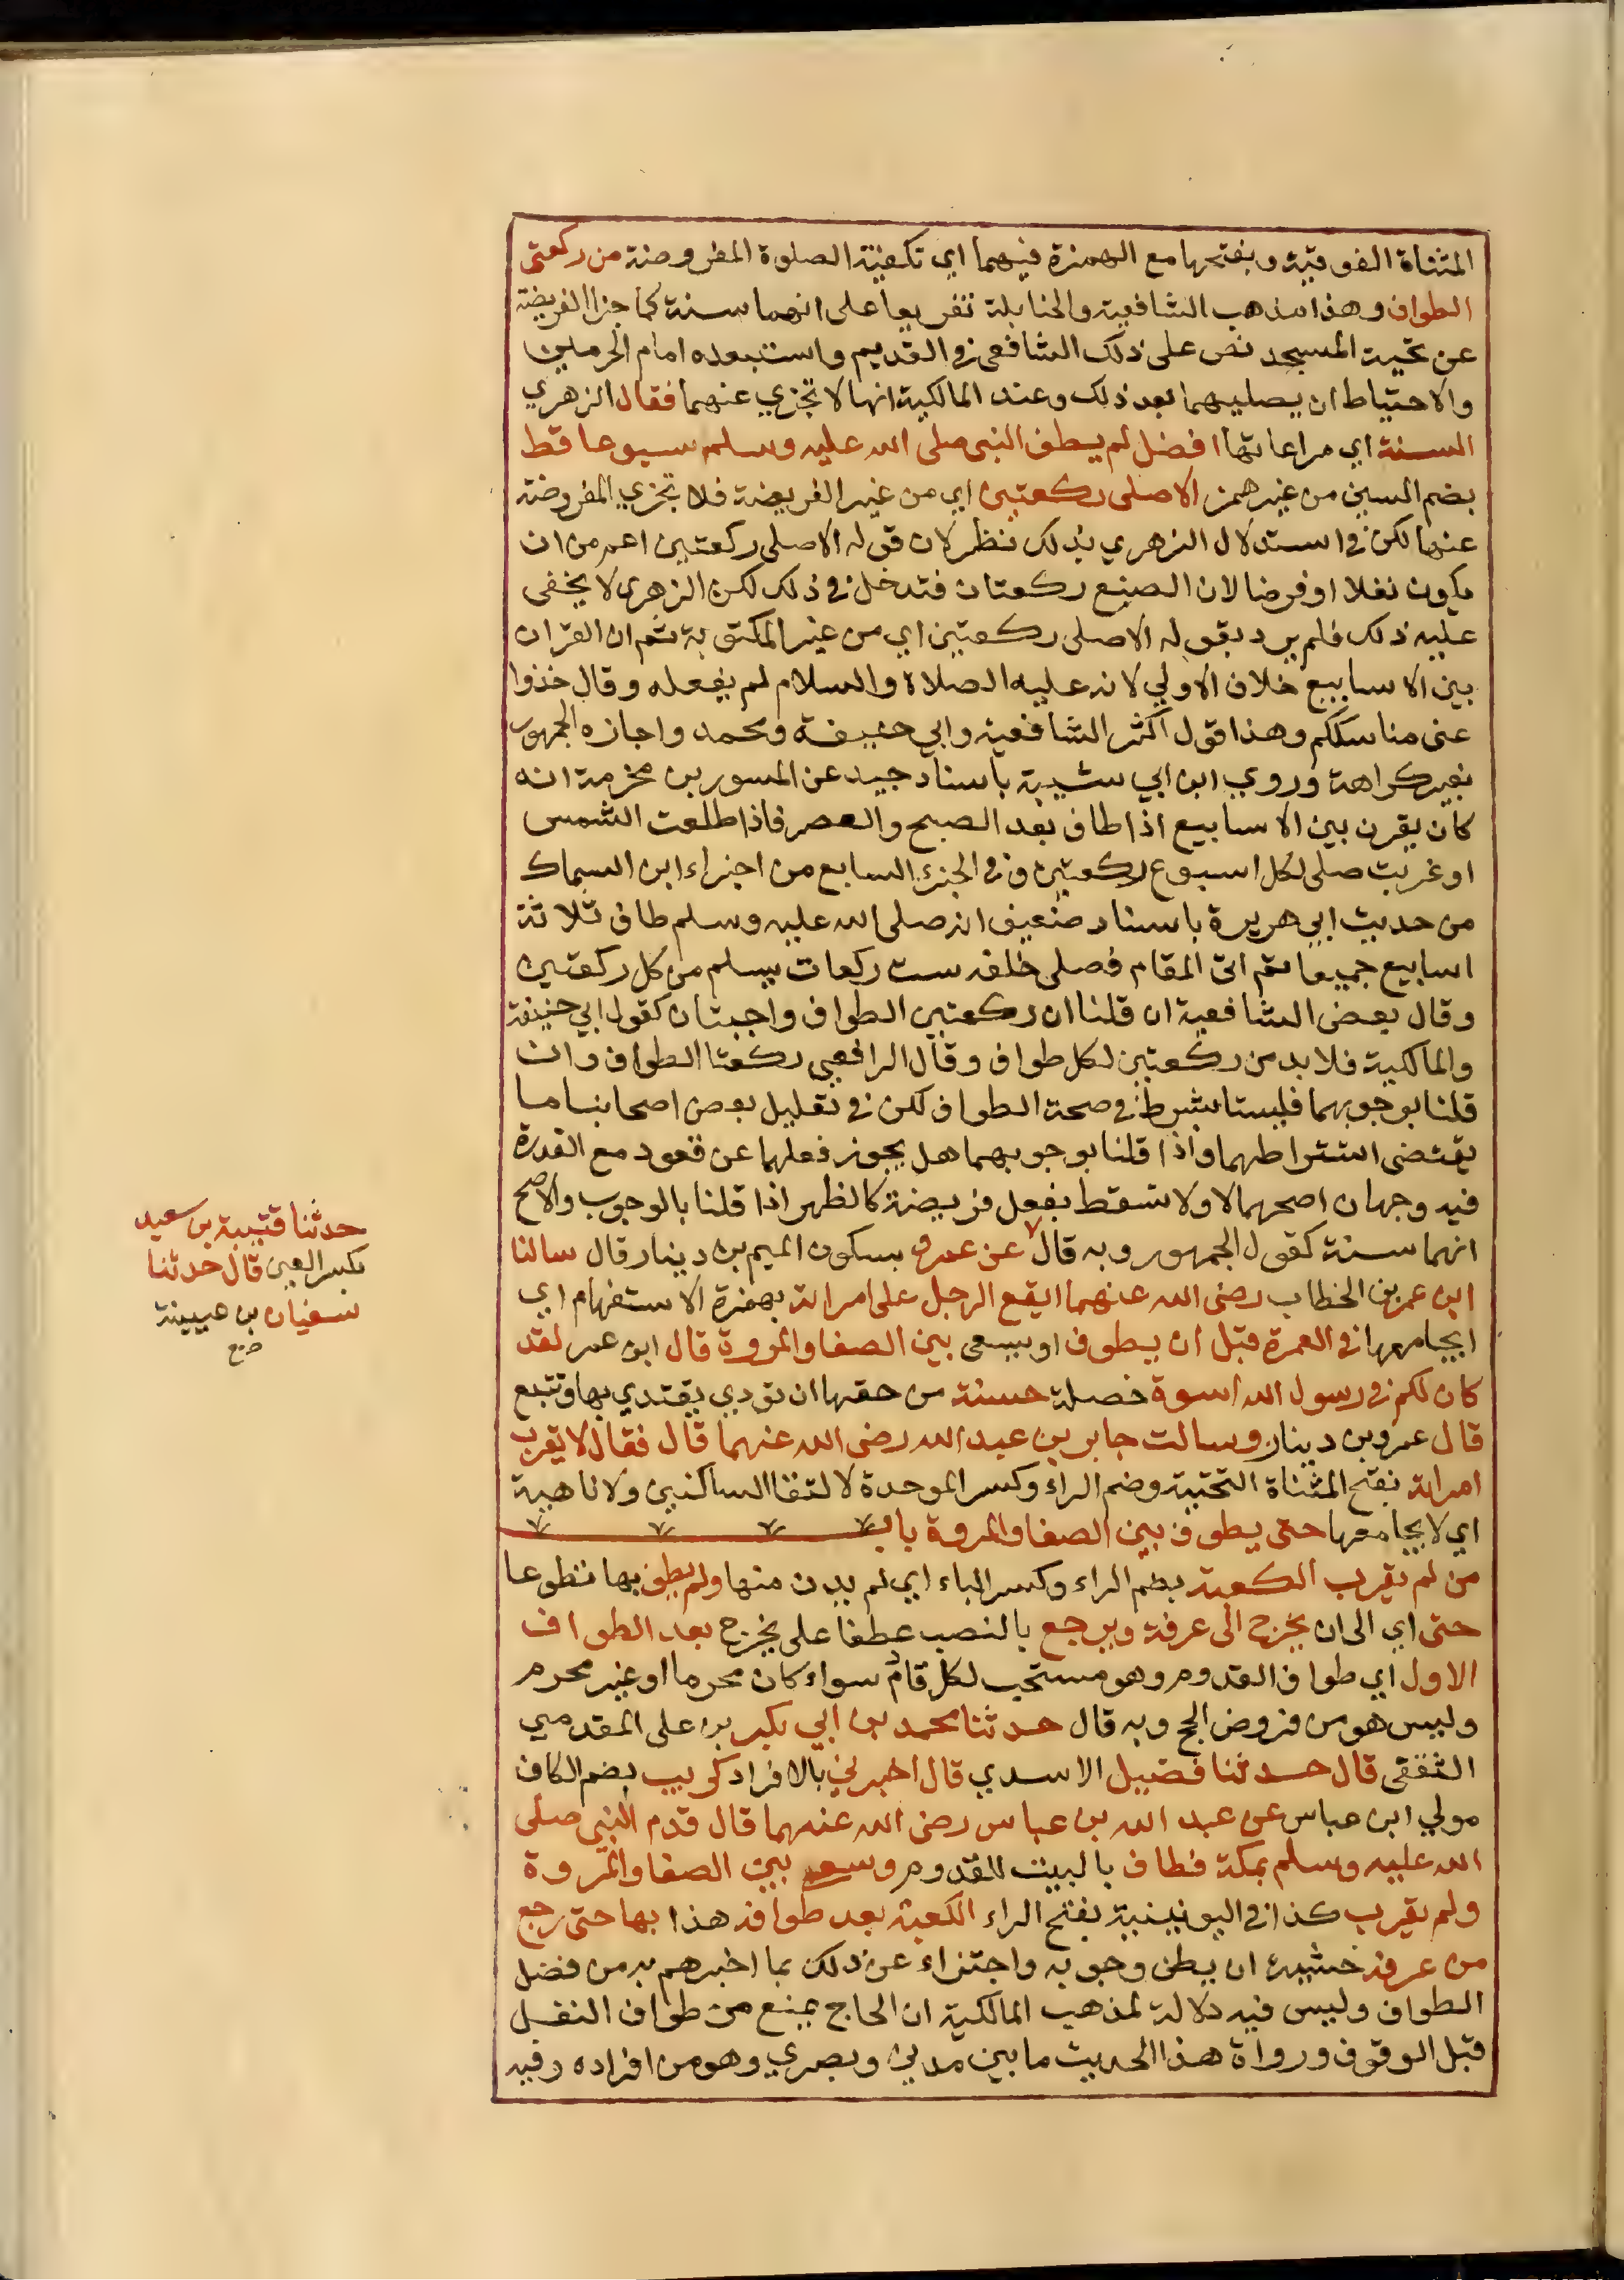 المثناة الفوقية وبفتحها مع الهمزة فيهما اي تكفيه الصلوة المفروضة من ركعتي
الطواف وهذا مذهب الشافعية والحنابلة تفريعا على انهما سنة كما جزا الفريضة
عن تحية المسجد نص على ذلك الشافعي في القديم واستبعده امام الحرمين
والاحتياط ان يصليهما بعد ذلك وعند المالكية انها لا تجزي عنهما فقال الزهري
السنة اي مراعاتها افضل لم يطف النبي صلى الله عليه وسلم سبوعا قط
بضم السين من غير همز الاصلى ركعتين اي من غير الفريضة فلا تجزي المفروضة
عنها لكن في استدلال الزهري بذلك نظر لان قوله الاصلى ركعتين اعم من ان
يكون نفلا او فرضا لان الصبح ركعتان فتدخل في ذلك لكن الزهري لا يخفى
عليه ذلك فلم يرد بقوله الاصلى ركعتين اي من غير المكتوبة ثم ان القران
بين الاسابيع خلاف الاولي لانه عليه الصلاة والسلام لم يفعله وقال خذوا
عني مناسككم وهذا قول اكثر الشافعية وابي حنيفة ومحمد واجازه الجمهور
بغير كراهة وروي ابن ابي شيبة باسناد جيد عن المسور بن مخرمة انه
كان يقرن بين الاسابيع اذا طاف بعد الصبح والعصر فاذا طلعت الشمس
او غربت صلى لكل اسبوع ركعتين وفي الجزء السابع من اجزاء ابن السماك
من حديث ابي هريرة باسناد ضعيف انه صلى الله عليه وسلم طاف ثلاثة
اسابيع جميعا ثم اتى المقام فصلى خلفه ست ركعات يسلم من كل ركعتين
وقال بعض الشافعية ان قلنا ان ركعتين الطواف واجبتان كقول ابي حنيفة
والمالكية فلا بد من ركعتين لكل طواف وقال الرافعي ركعتا الطواف وان
قلنا بوجوبهما فليستا بشرط في صحة الطواف لكن في تعليل بعض اصحابنا ما
يقتضي اشتراطهما واذا قلنا بوجوبهما هل يجوز فعلهما عن قعود مع القدرة
فيه وجهان اصحهما لا ولا تسقط بفعل فريضة كالظهر اذا قلنا بالوجوب والاصح
انهما سنة كقول الجمهور وبه قال عن عمرو بسكون الميم بن دينار قال سالنا
ابن عمر بن الخطاب رضي الله عنهما ايقع الرجل على امراته بهمزة الاستفهام اي
ايجامعها في العمرة قبل ان يطوف او يسعى بين الصفا والمروة قال ابن عمر لقد
كان لكم في رسول الله اسوة خصلة حسنة من حقها ان تودي يقتدي بها وتتبع
قال عمرو بن دينار وسالت جابر بن عبد الله رضي الله عنهما قال فقال لا يقرب
امراته بفتح المثناة التحتية وضم الراء وكسر الموحدة لالتقا الساكنين ولا ناهية
اي لا يجامعها حتى يطوف بين الصفا والمروة باب
من لم يقرب الكعبة بضم الراء وكسر الباء اي لم يدن منها ولم يطف بها تطوعا
حتى اي الى ان يخرج الى عرفة ويرجع بالنصب عطفا على يخرج بعد الطواف
الاول اي طواف القدوم وهو مستحب لكل قادم سواء كان محرما او غير محرم
وليس هو من فروض الحج وبه قال حدثنا محمد بن ابي بكر بن على المقدمي
الثقفي قال حدثنا فضيل الاسدي قال اخبرني بالافراد كريب بضم الكاف
مولي ابن عباس عن عبد الله بن عباس رضي الله عنهما قال قدم النبي صلى
الله عليه وسلم بمكة فطاف بالبيت للقدوم وسعى بين الصفا والمروة
ولم يقرب كذا في اليونينية بفتح الراء الكعبة بعد طوافه هذا بها حتى رجع
من عرفة خشية ان يظن وجوبه واجتزاء عن ذلك بما اخبرهم به من فضل
الطواف وليس فيه دلالة لمذهب المالكية ان الحاج يمنع من طواف النفل
قبل الوقوف ورواة هذا الحديث ما بين مدني وبصري وهو من افراده وفيه
حدثنا قتيبة بن سعيد
بكسر العين قال حدثنا
سفيان بن عيينة
صح